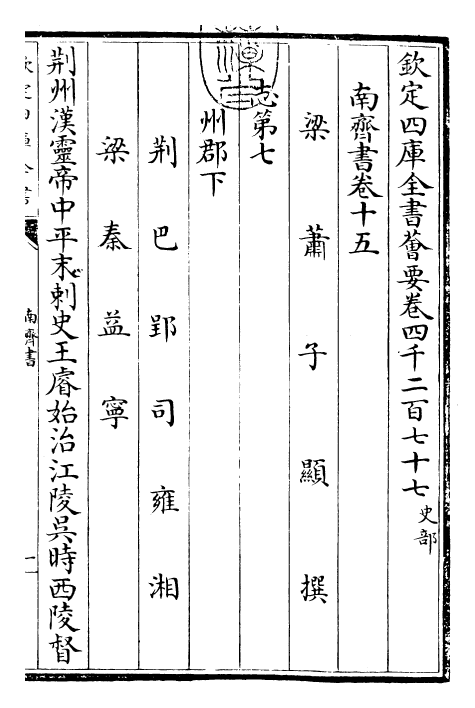 欽定四庫全書薈要卷四千二百七十七史部
南齊書卷十五
梁蕭子顯撰
志第七
州郡下
荆巴郢司雍湘
梁秦益寧
荆州漢靈帝中平末刺史王睿始治江陵吳時西陵督
欽定四庫全書
南齊書
一